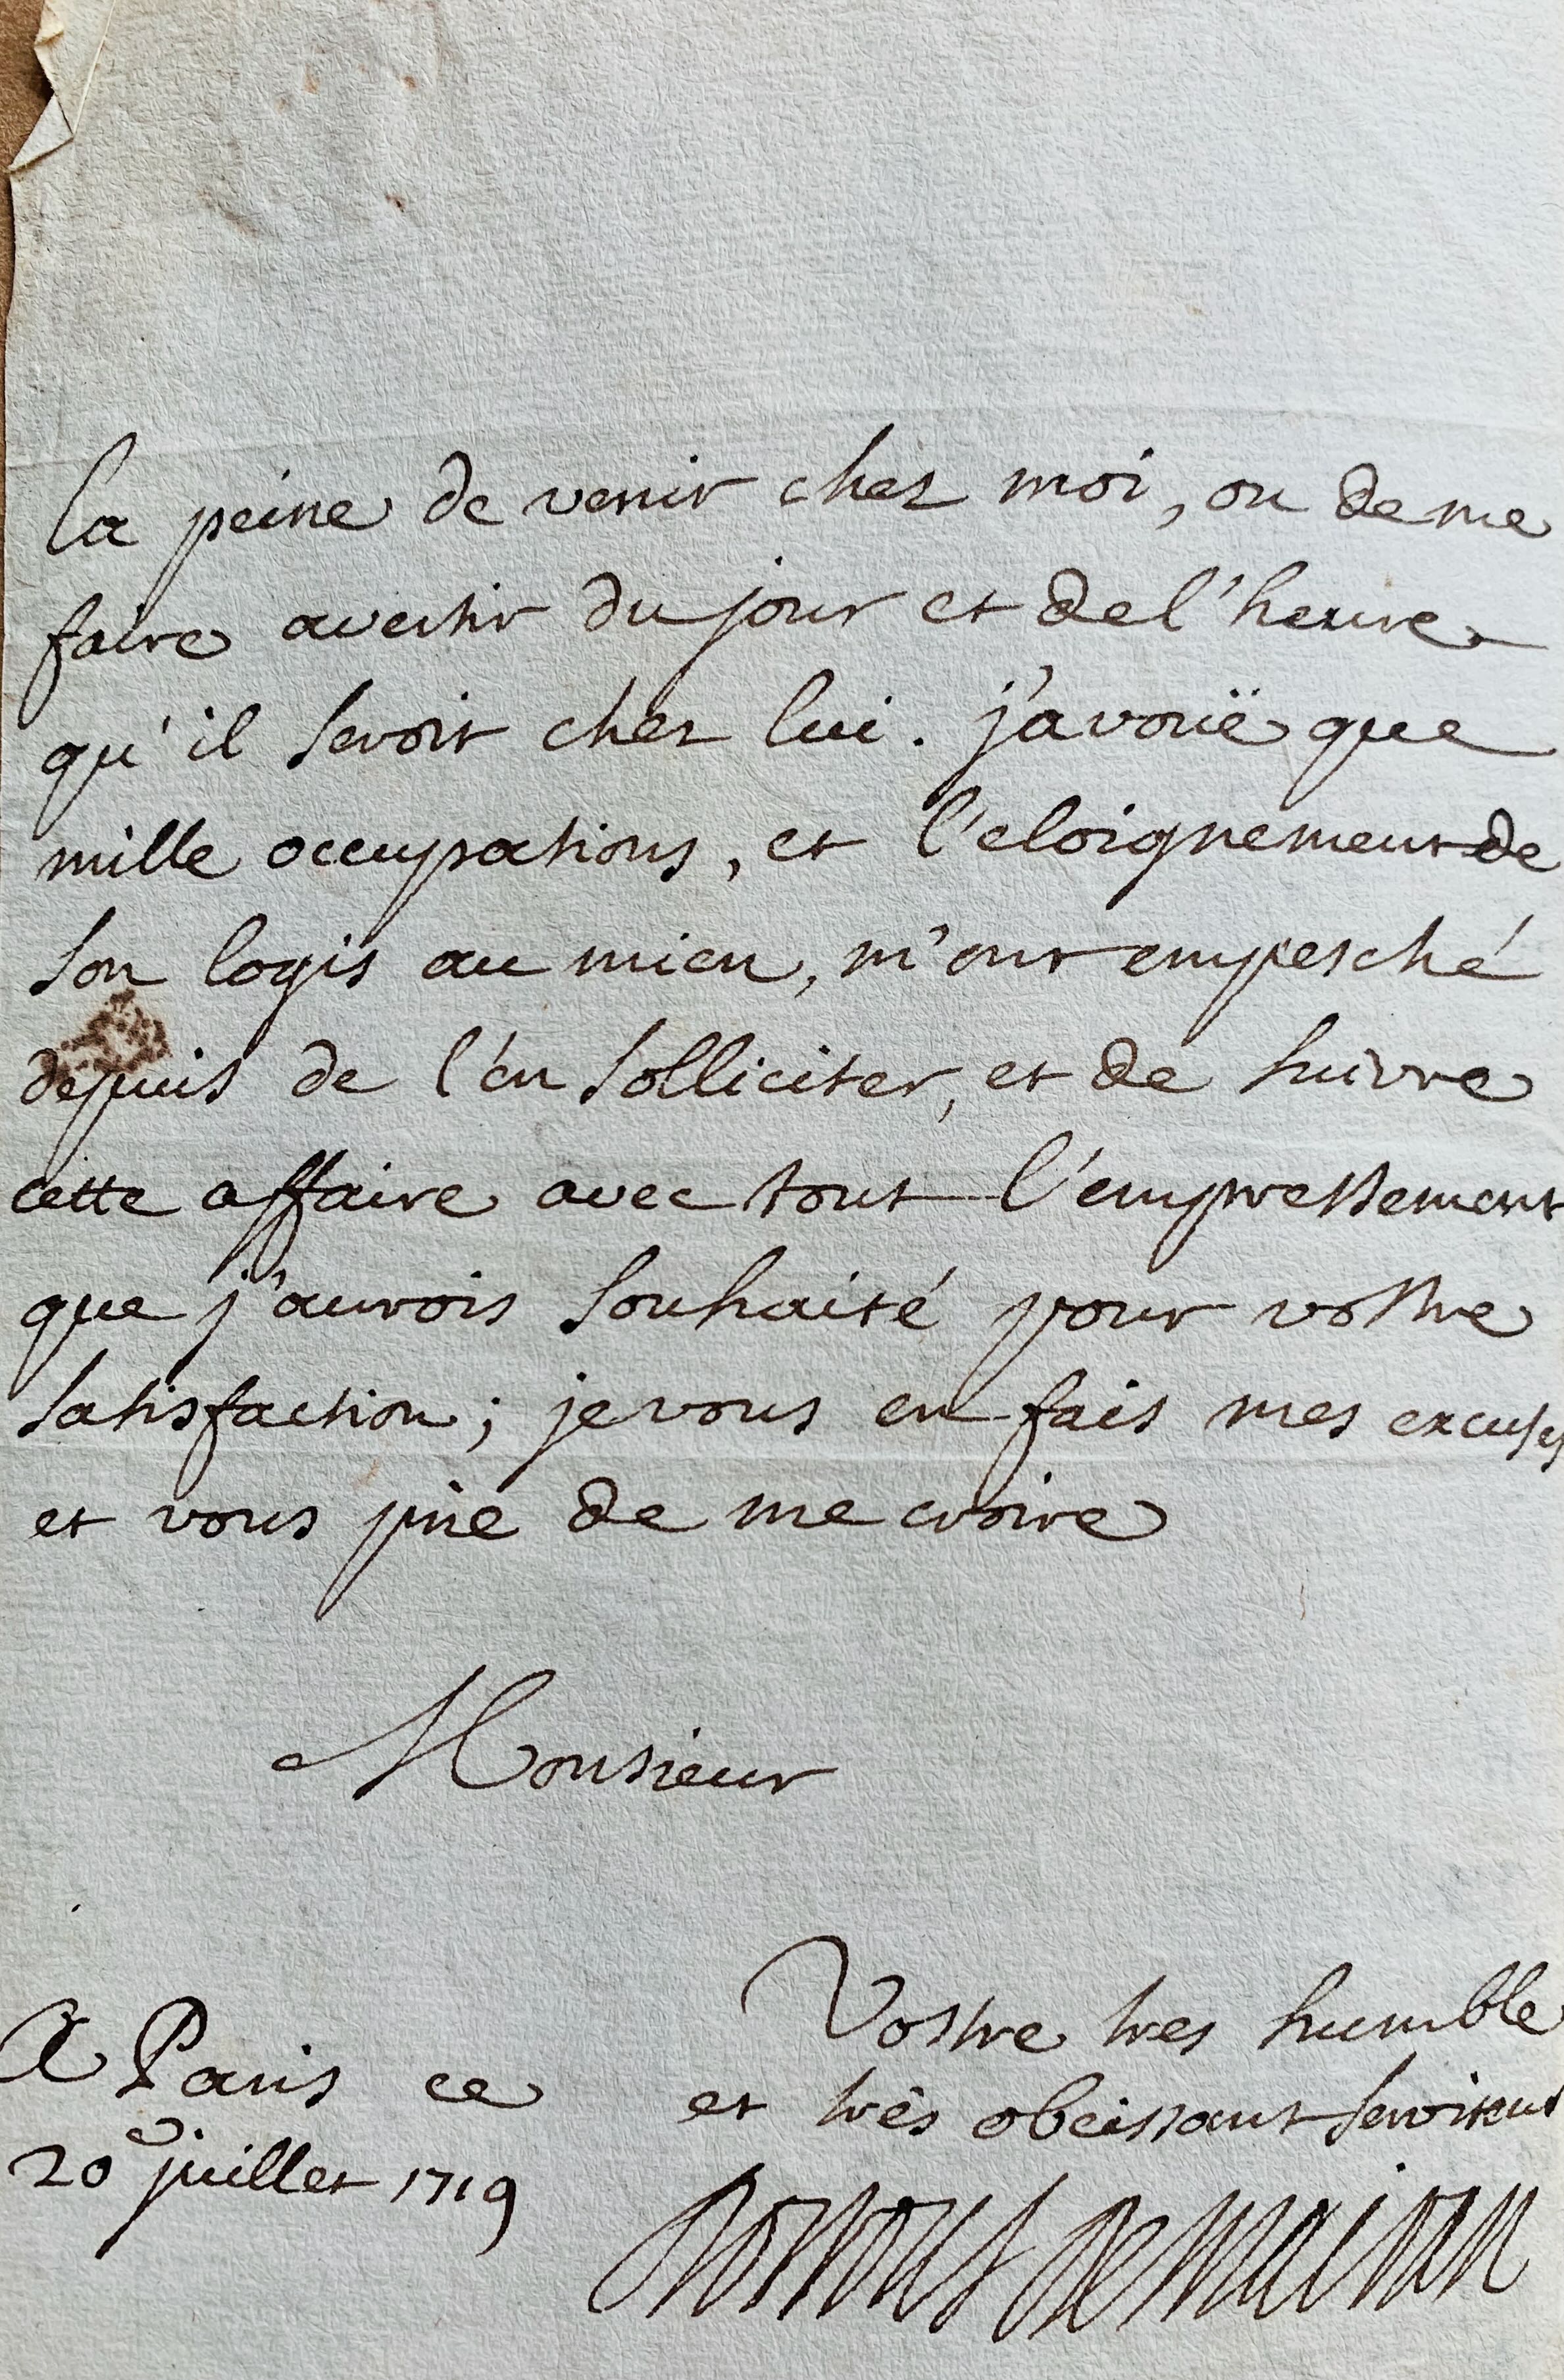 la peine de venir chez moi, ou de me
faire avertir du jour et de l'heure
qu'il seroit chez lui. j'avoüe que
mille occupations, et l'eloignement de
son logis au mien, m'ont empesché
depuis de l'en solliciter, et de suivre
cette affaire avec tout l'empressement
que j'aurois souhaité pour vostre
satisfaction; je vous en fais mes excuses
et vous prie de me croire
Monsieur
Vostre tres humble
et très obeissant serviteur
A Paris ce
20 juillet 1719
Dortous de Mairan